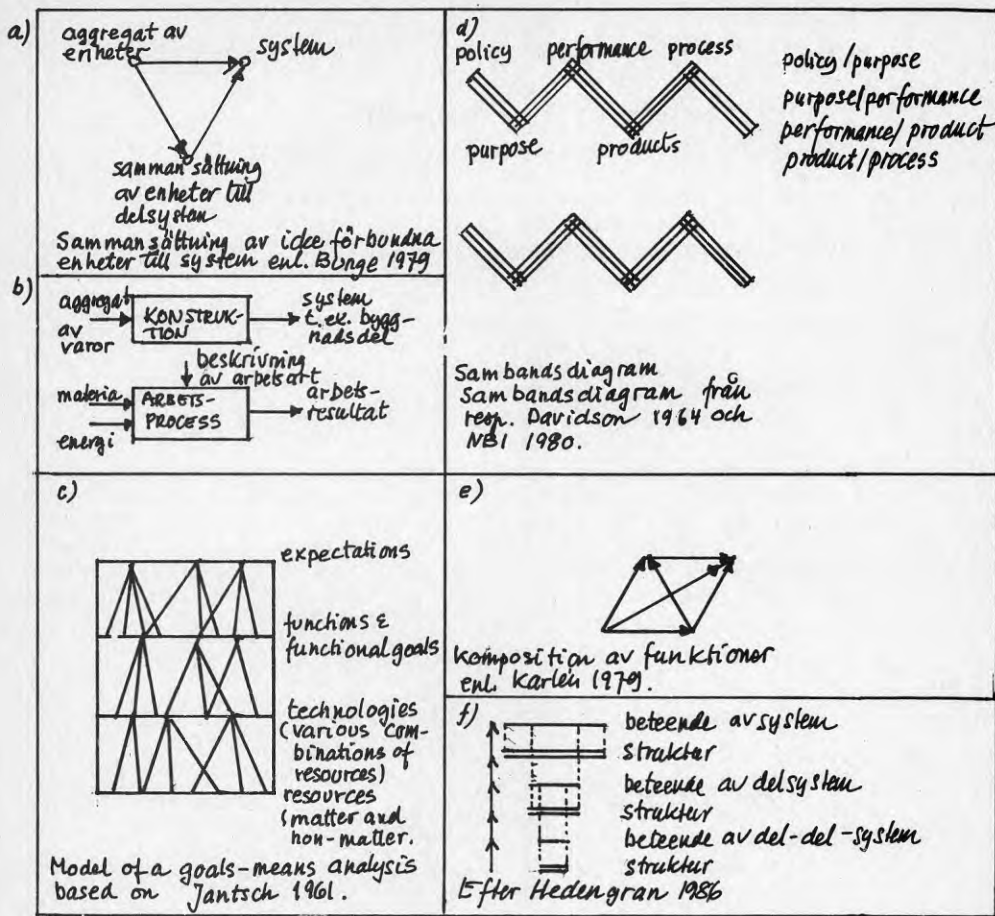 a)
aggregat av
enheter
system
samman sättning
av enheter till
delsystem
Sammansättning av icke förbundna
enheter till system enl. Bunge 1979
b)
aggregat
av
varor
KONSTRUK-
TION
system
t.ex. bygg-
nadsdel
beskrivning
av arbetsart
materia
energi
ARBETS-
PROCESS
arbets-
resultat
c)
expectations
functions &
functional goals
technologies
(various com-
binations of
resources)
resources
(matter and
non-matter.
Model of a goals-means analysis
based on Jantsch 1961.
d)
policy performance process
purpose products
policy/purpose
purpose/performance
performance/product
product/process
Sambandsdiagram
Sambandsdiagram från
resp. Davidson 1964 och
NBI 1980.
e)
Komposition av funktioner
enl. Karlén 1979.
f)
beteende av system
struktur
beteende av delsystem
struktur
beteende av del-del-system
struktur
Efter Hedengran 1986